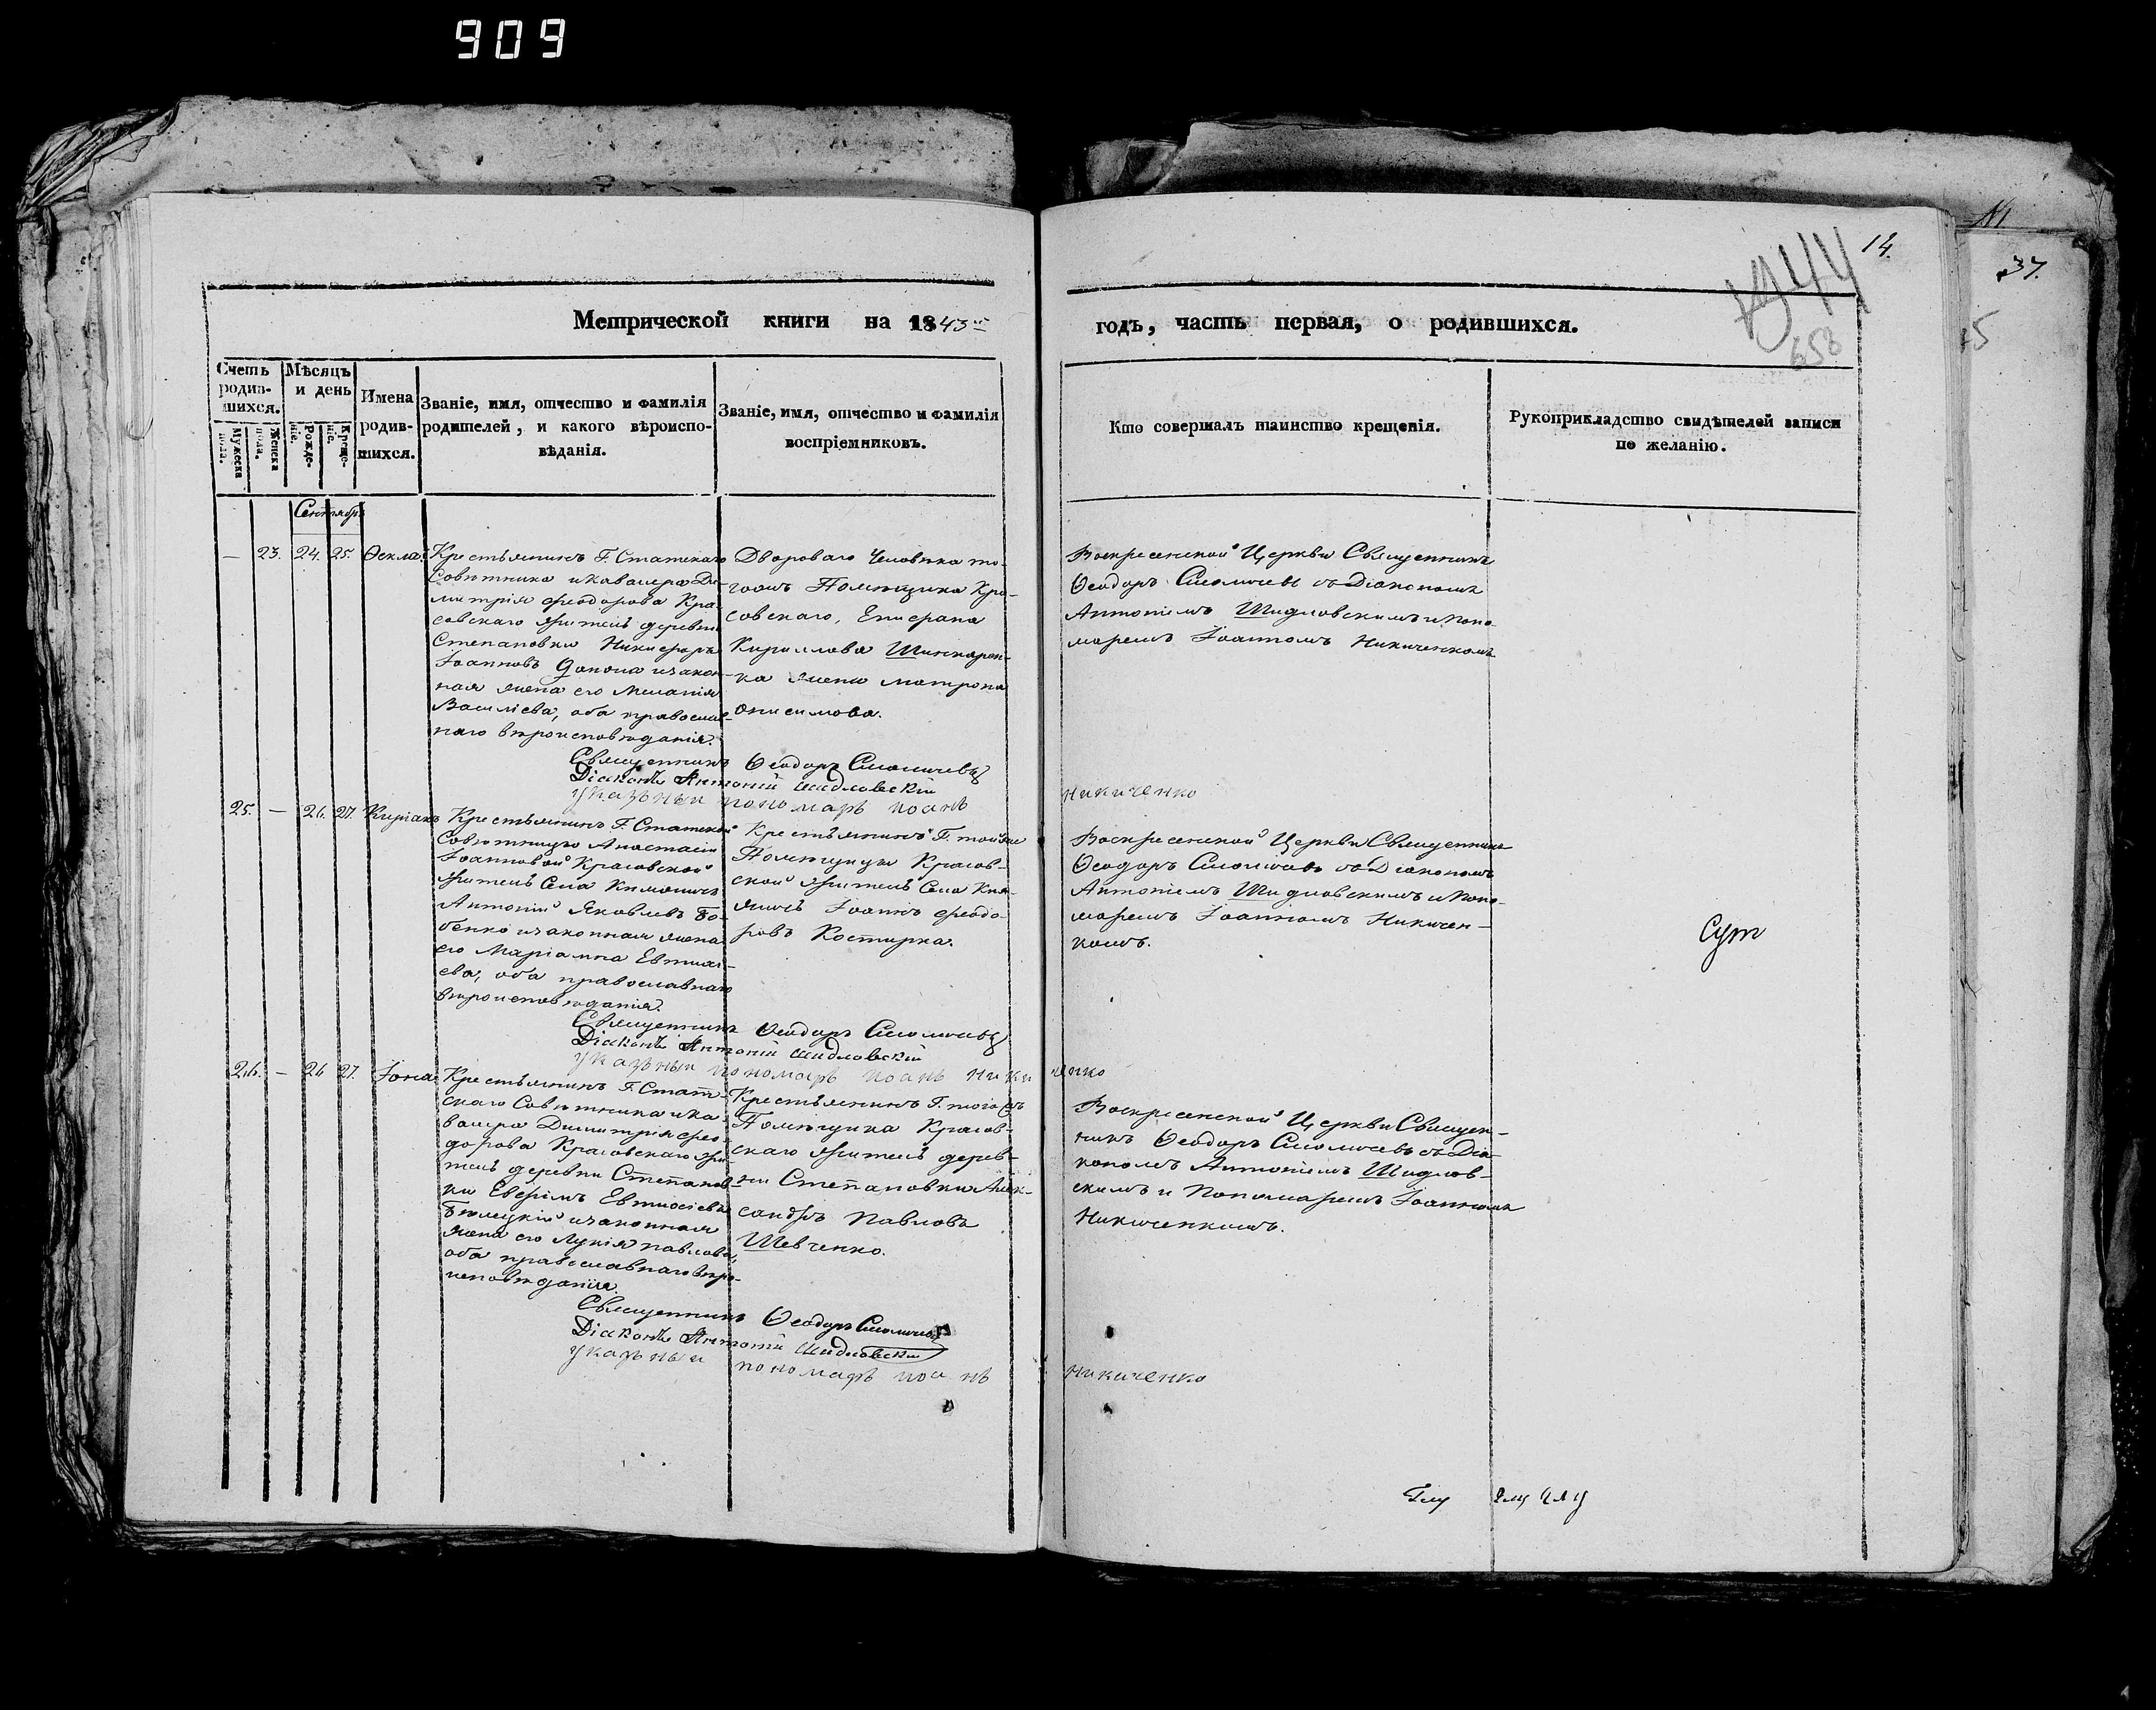 909
14.
1944
658
№1
37.
5
Метрической книги на 1843й
годъ, часть первая, о родившихся.
Счетъ родив-
шихся.
Мужеска пола.
Женска пола.
Мѣсяцъ и день
Рожде-
ніе.
Креще-
ніе.
Имена
родив-
шихся.
Званіе, имя, отчество и фамилія
родителей, и какого вѣроиспо-
вѣданія.
Званіе, имя, отчество и фамилія
воспріемниковъ.
Кто совершалъ таинство крещенія.
Рукоприкладство свидѣтелей записи
по желанію.
Сентябрь
— 23. 24. 25. Ѳекла
Крестьянинъ Г. Статскаго
Совѣтника и кавалера Ди-
митрія Ѳеодорова Кра-
совскаго житель деревни
Степановки Никифоръ
Іоанновъ и закон-
ная жена его Меланія
Василіева, оба православ-
наго вѣроисповѣданія.
Двороваго Человѣка то-
гожъ Помѣщика Кра-
совскаго, Епифана
Кирилова Шинкарен-
ка жена Матрона
Онисимова.
Воскресенской Церкви Священникъ
Ѳеодоръ Смоличевъ съ Діакономъ
Антоніемъ Шидловскимъ и Поно-
маремъ Іоанномъ Никиченкомъ
Священникъ Ѳеодоръ Смоличевъ
Діаконъ Антоній Шидловскій
указьный пономаръ иоанъ никиченко
25. — 26. 27. Киріакъ
Крестьянинъ Г. Статской
Совѣтницы Анастасіи
Іоанновой Красовской
житель Села
Антоній Яковлевъ Бо-
бенко и законная жена
его Маріамна Евтихі-
ева, оба православнаго
вѣроисповѣданія.
Крестьянинъ Г. той же
Помѣщицы Красов-
ской житель Села Кня-
жичъ Іоаннъ Ѳеодо-
ровъ Костырка.
Воскресенской Церкви Священникъ
Ѳеодоръ Смоличевъ съ Діакономъ
Антоніемъ Шидловскимъ и Поно-
маремъ Іоанномъ Никичен-
комъ.
Сут
Священникъ Ѳеодоръ Смоличевъ
Діаконъ Антоній Шидловскій
указьный пономаръ иоанъ никиченко
26. — 26 27. Іона
Крестьянинъ Г. Стат-
скаго Совѣтника и ка-
валера Димитрія Ѳео-
дорова Красовскаго жи-
тель деревни Степанов-
ки Евѳимъ Евтихіевъ
и законная
жена его Лукія Павлова,
оба православнаго вѣро-
исповѣданія.
Крестьянинъ Г. того жъ
Помѣщика Красов-
скаго житель дерев-
ни Степановки Алек-
сандръ Павловъ
Шевченко.
Воскресенской Церкви Священ-
никъ Ѳеодоръ Смоличевъ съ Діа-
кономъ Антоніемъ Шидлов-
скимъ и Пономаремъ Іоанномъ
Никиченкомъ.
Священникъ Ѳеодоръ Смоличевъ
Діаконъ Антоній Шидловскій
указьный пономаръ иоанъ никиченко